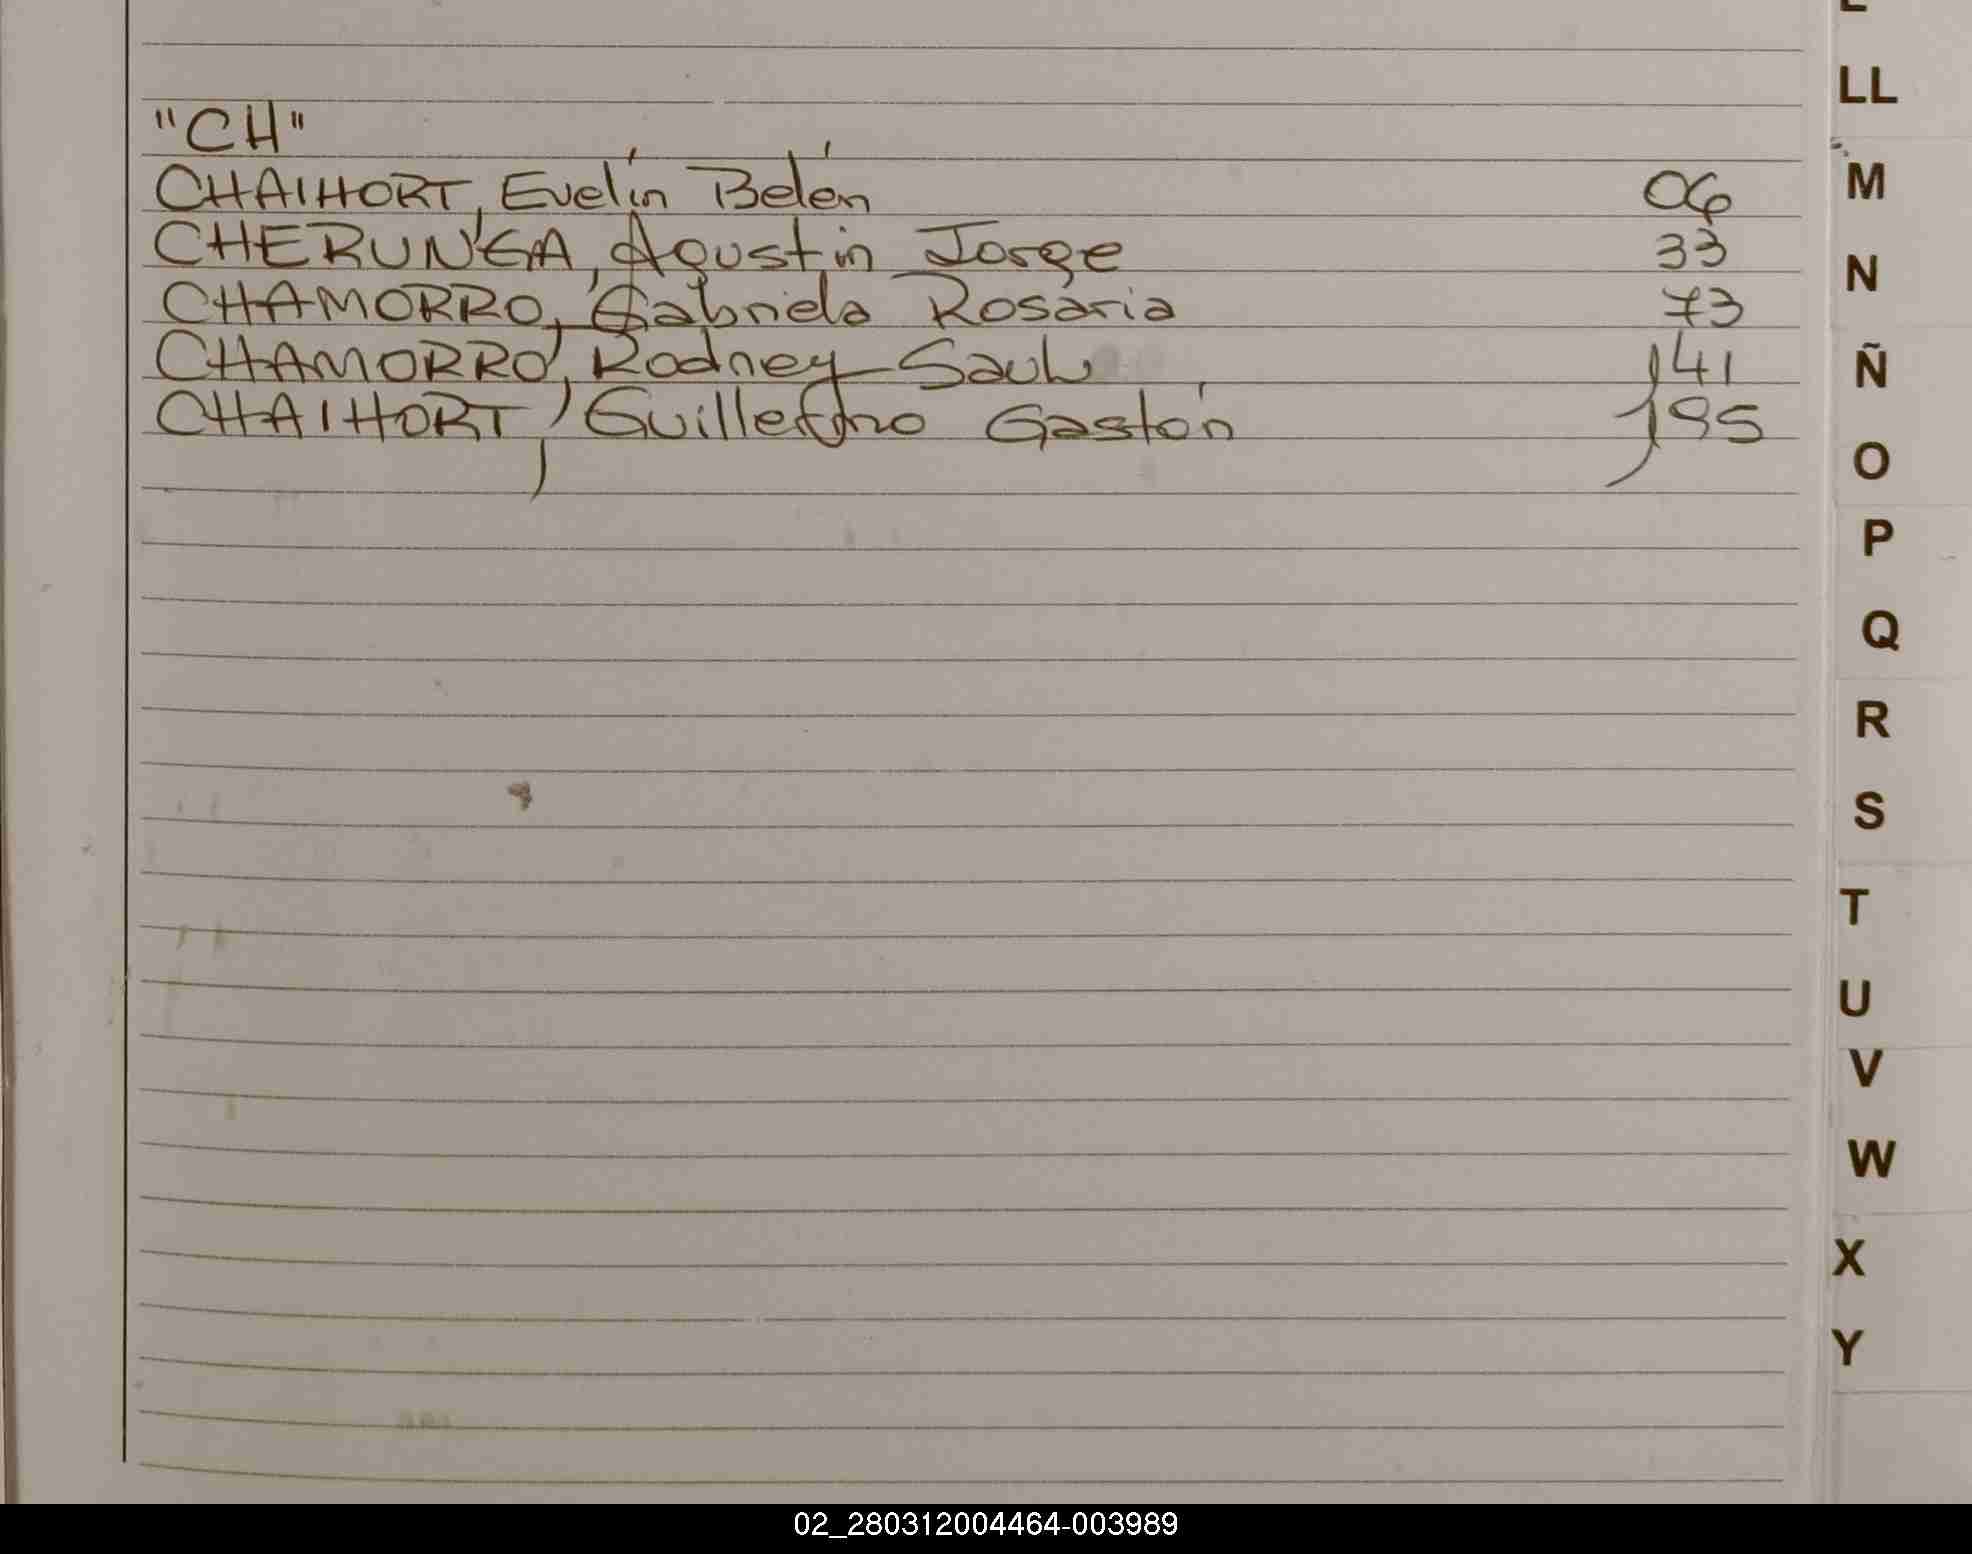 "CH"
CHAIHORT, Evelín Belén 06
CHERUN'GA, Agustín Jorge 33
CHAMORRO, Gabriela Rosaria 73
CHAMORRO, Rodney Saul 141
CHAIHORT, Guillermo Gastón 195
LL
M
N
Ñ
O
P
Q
R
S
T
U
V
W
X
Y
02_280312004464-003989